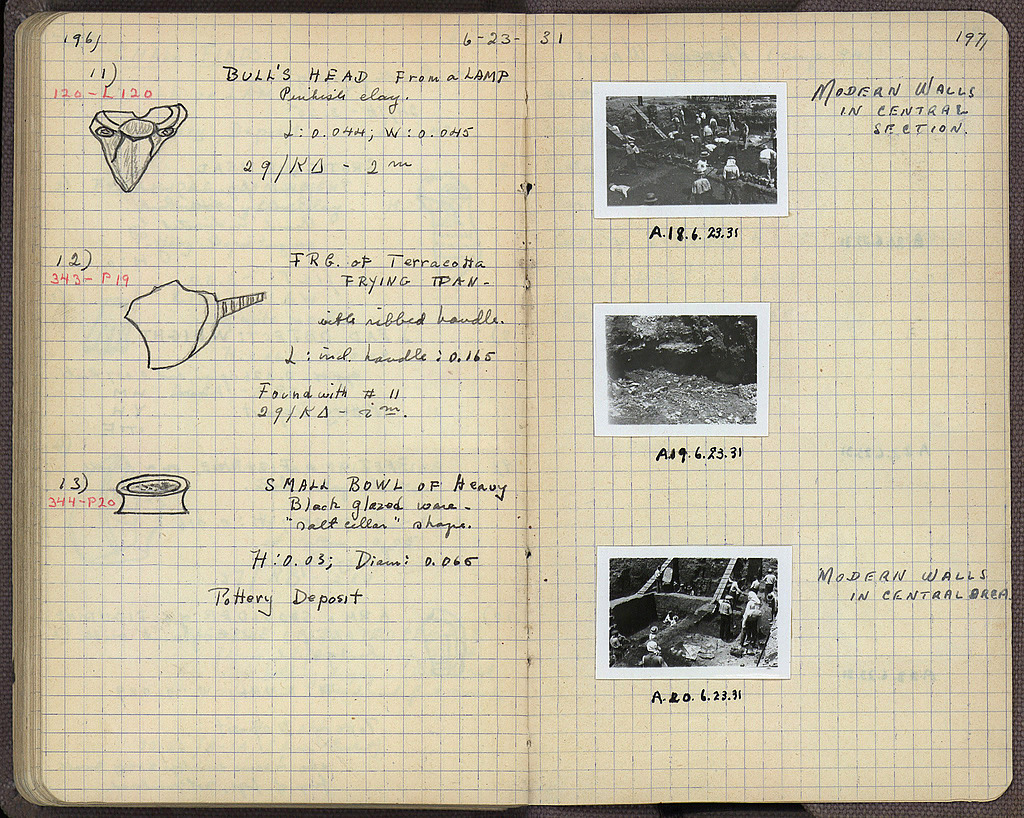 196/
6-23-31
197/
11)
120-L120
BULL'S HEAD From a LAMP
Pinkish clay.
L: 0.044; W: 0.045
29/ΚΔ - 2 m
12)
343-P19
FRG. of Terracotta
FRYING PAN-
with ribbed handle.
L: incl. handle: 0.165
Found with # 11
29/ΚΔ - 2 m.
13)
344-P20
SMALL BOWL OF Heavy
Black glazed ware-
"salt cellar" shape.
H: 0.03; Diam: 0.065
Pottery Deposit
MODERN WALLS
IN CENTRAL
SECTION.
A.18.6.23.31
A.19.6.23.31
MODERN WALLS
IN CENTRAL AREA
A.20.6.23.31